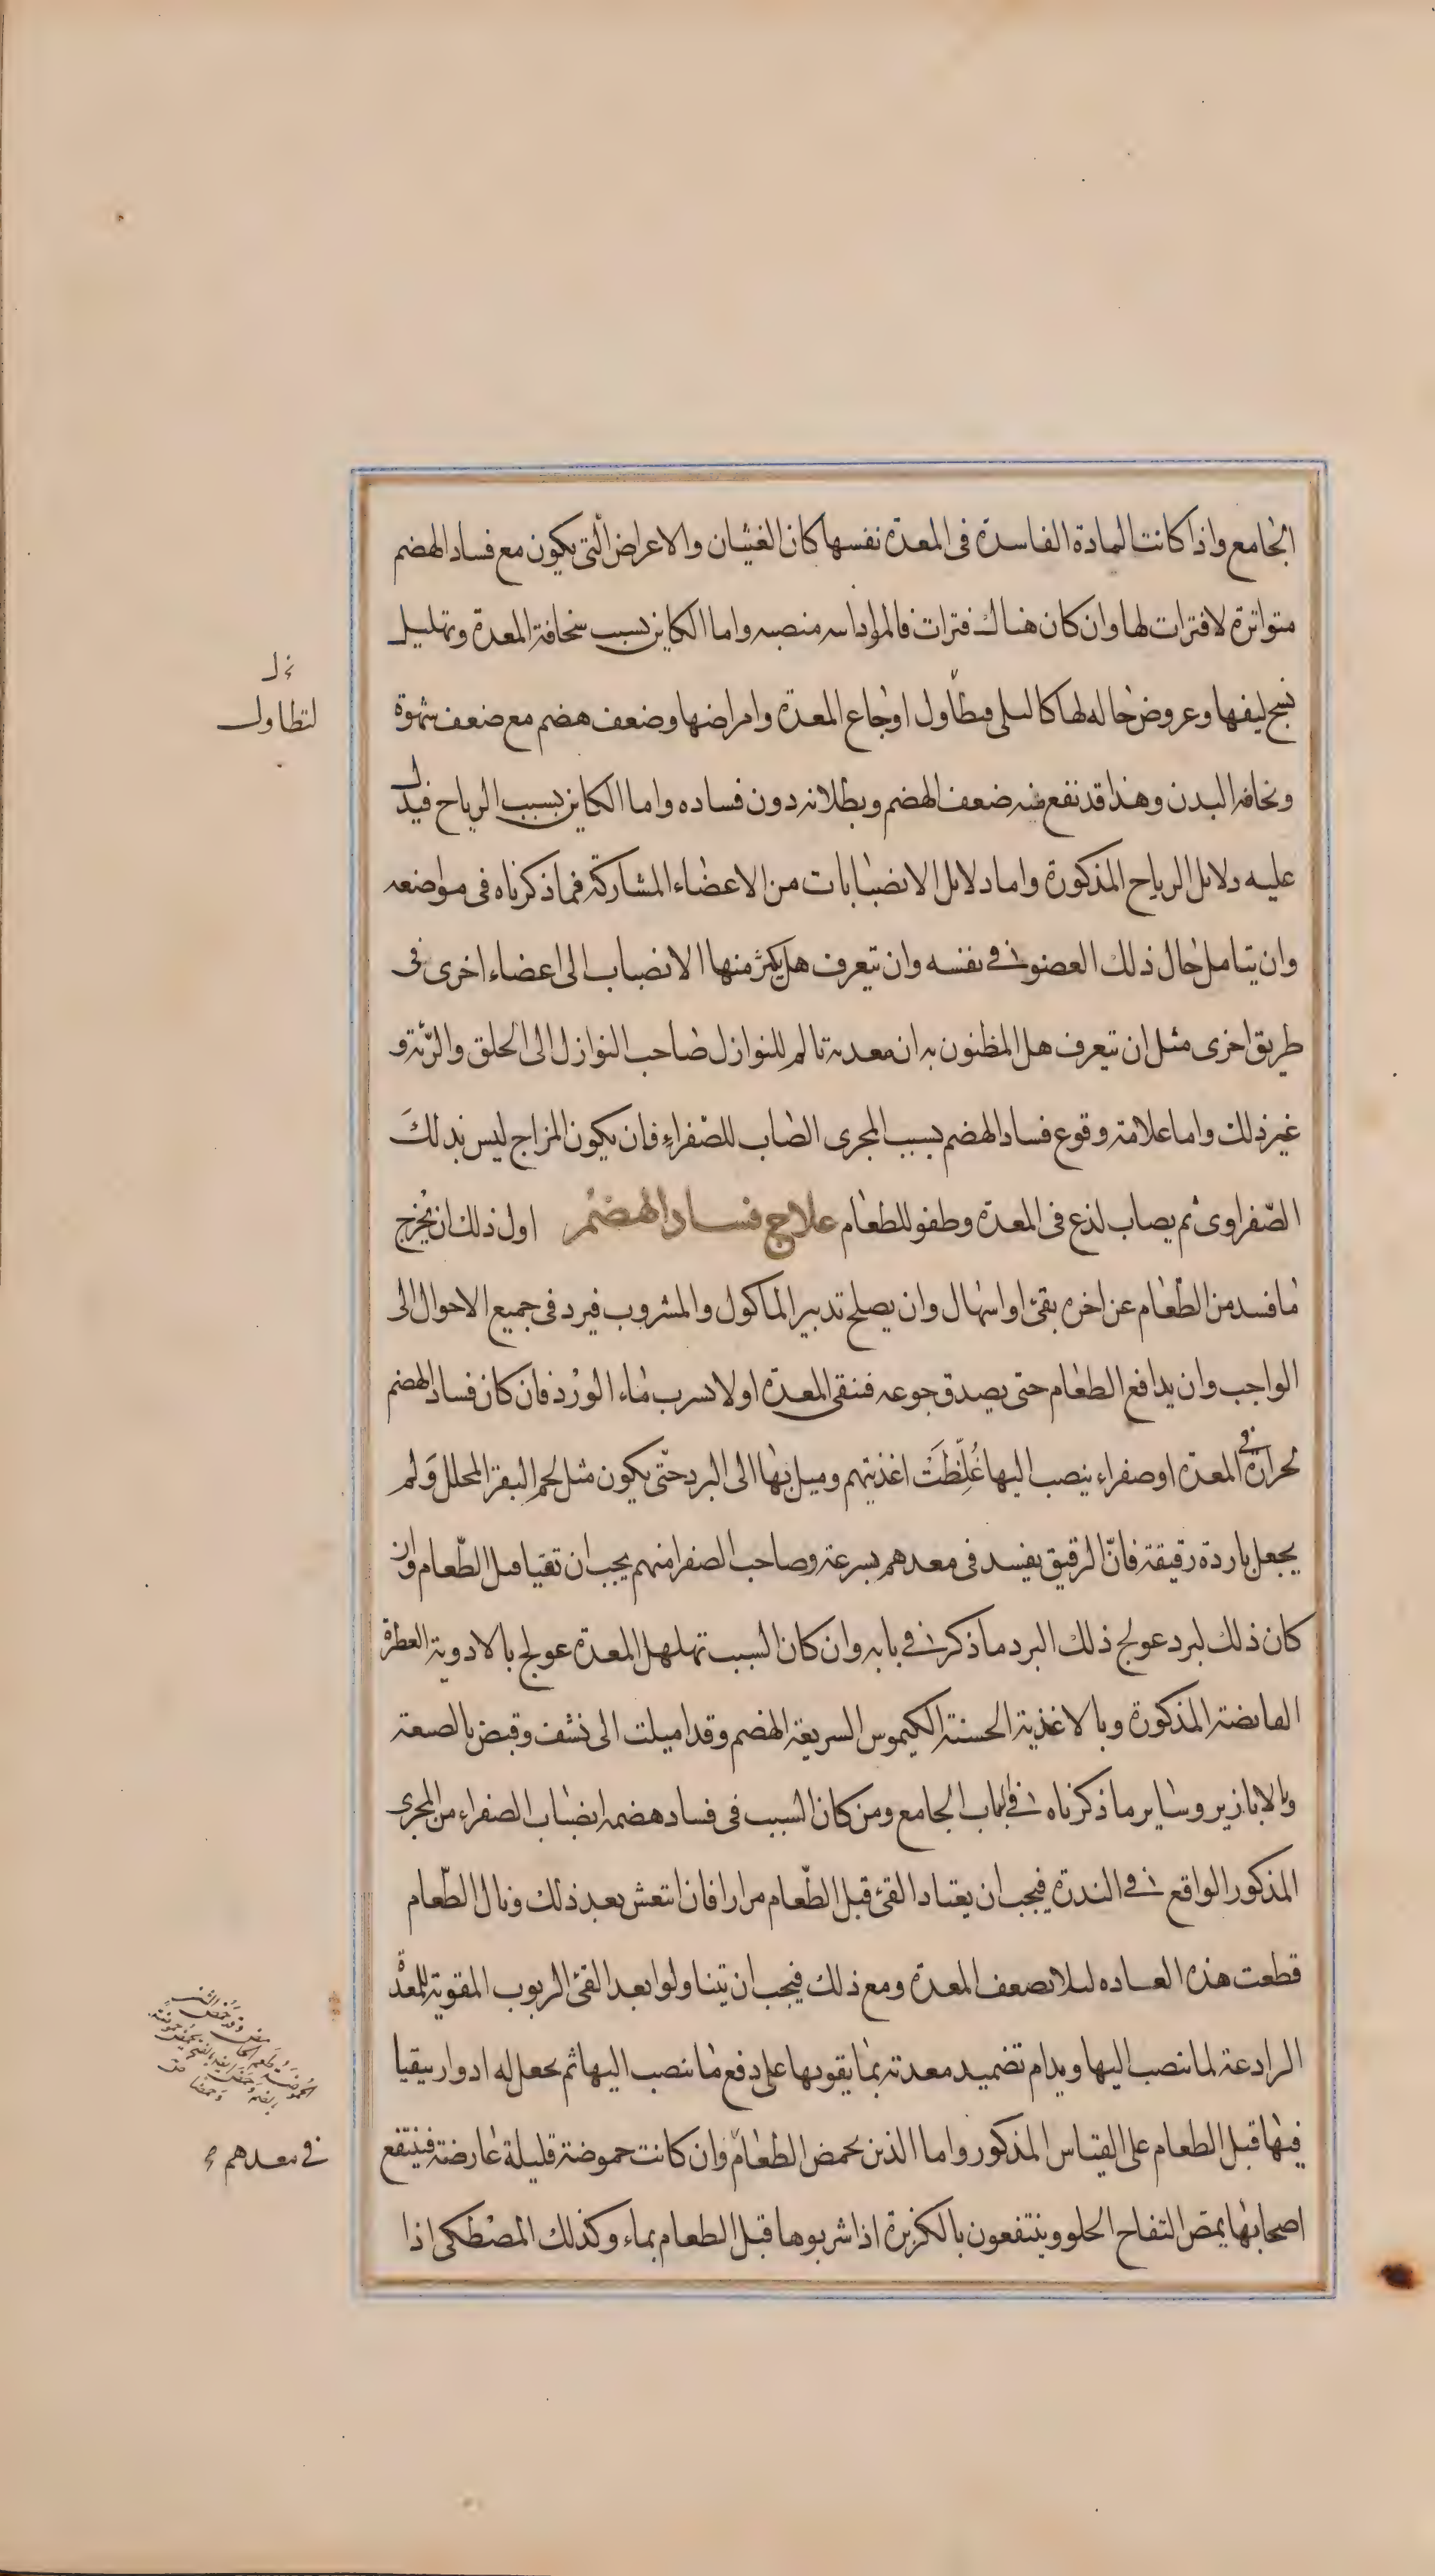 الجامع واذا كانت المادة الفاسدة فى المعدة نفسها كان الغثيان والاعراض الّتى يكون مع فساد الهضم
متواترة لا فترات لها وان كان هناك فترات فالمواد منصبه واما الكاين بسبب سخافة المعدة وتهليل
نسج ليفها وعروض حاله لها كالبلى فيطاول اوجاع المعدة وامراضها وضعف هضم مع ضعف شهوة
ونحافه البدن وهذا قد نفع منه ضعف الهضم وبطلانه دون فساده واما الكاين بسبب الرياح فيدل
عليه دلايل الرياح المذكورة واما دلايل الانصبابات من الاعضاء المشاركة فما ذكرناه فى مواضعه
وان يتامل حال ذلك العضو فى نفسه وان يتعرف هل يكثر منها الانصباب الى اعضاء اخرى فى
طريق اخرى مثل ان يتعرف هل المظنون به ان معدته تالم للنوازل صاحب النوازل الى الحلق والرّئة و
غير ذلك واما علامة وقوع فساد الهضم بسبب المجرى الصاب للصّفراءِ فان يكون المزاج ليس بذلكَ
الصّفراوى ثم يصاب لذع فى المعدة وطفو للطعام علاج فساد الهضم اول ذلك ان يُخرج
ما فسد من الطّعام عن اخره بقئ او اسهال وان يصلح تدبير الماكول والمشروب فيرد فى جميع الاحوال الى
الواجب وان يدافع الطعام حتى يصدق جوعه فنقى المعدة اولا بشرب ماء الورد فان كان فساد الهضم
لحرارة فى المعدة او صفراء ينصب اليها غُلِّظَتْ اغذيتهم وميل بها الى البرد حتّى يكون مثل لحم البقر المحلل وَلم
يجعل باردة رقيقة فانّ الرقيق يفسد فى معدهم بسرعة وصاحب الصفرا منهم يجب ان تقيا قبل الطّعام وان
كان ذلك لبرد عولج ذلك البرد ما ذكر فى بابه وان كان السبب تهلهل المعدة عولج بالادوية العطرة
القابضة المذكورة وبالاغذية الحسنة الكيموس السريعة الهضم وقد اميلت الى نشف وقبض بالصعة
وبالابازير وساير ما ذكرناه فى الباب الجامع ومن كان السبب فى فساد هضمه انصباب الصفراء من المجرى
المذكور الواقع فى الندرة فيجب ان يعتاد القئ قبل الطّعام مرارا فان انتعش بعد ذلك ونال الطّعام
قطعت هذه العاده ليلا يضعف المعدة ومع ذلك فيجب ان يتناولوا بعد القئ الربوب المقوية للمعدة
الرادعة لما ينصب اليها ويدام تضميد معدته بما يقويها على دفع ما ينصب اليها ثم يجعل له ادوار يتقيا
فيها قبل الطعام على القياس المذكور واما الذين يحمض الطعام وان كانت حموضة قليلة عارضة فينتفع
اصحابها بمص التفاح الحلو وينتفعون بالكزبرة اذا شربوها قبل الطعام بماء وكذلك المصطكى اذا
لتطاول
فى معدهم